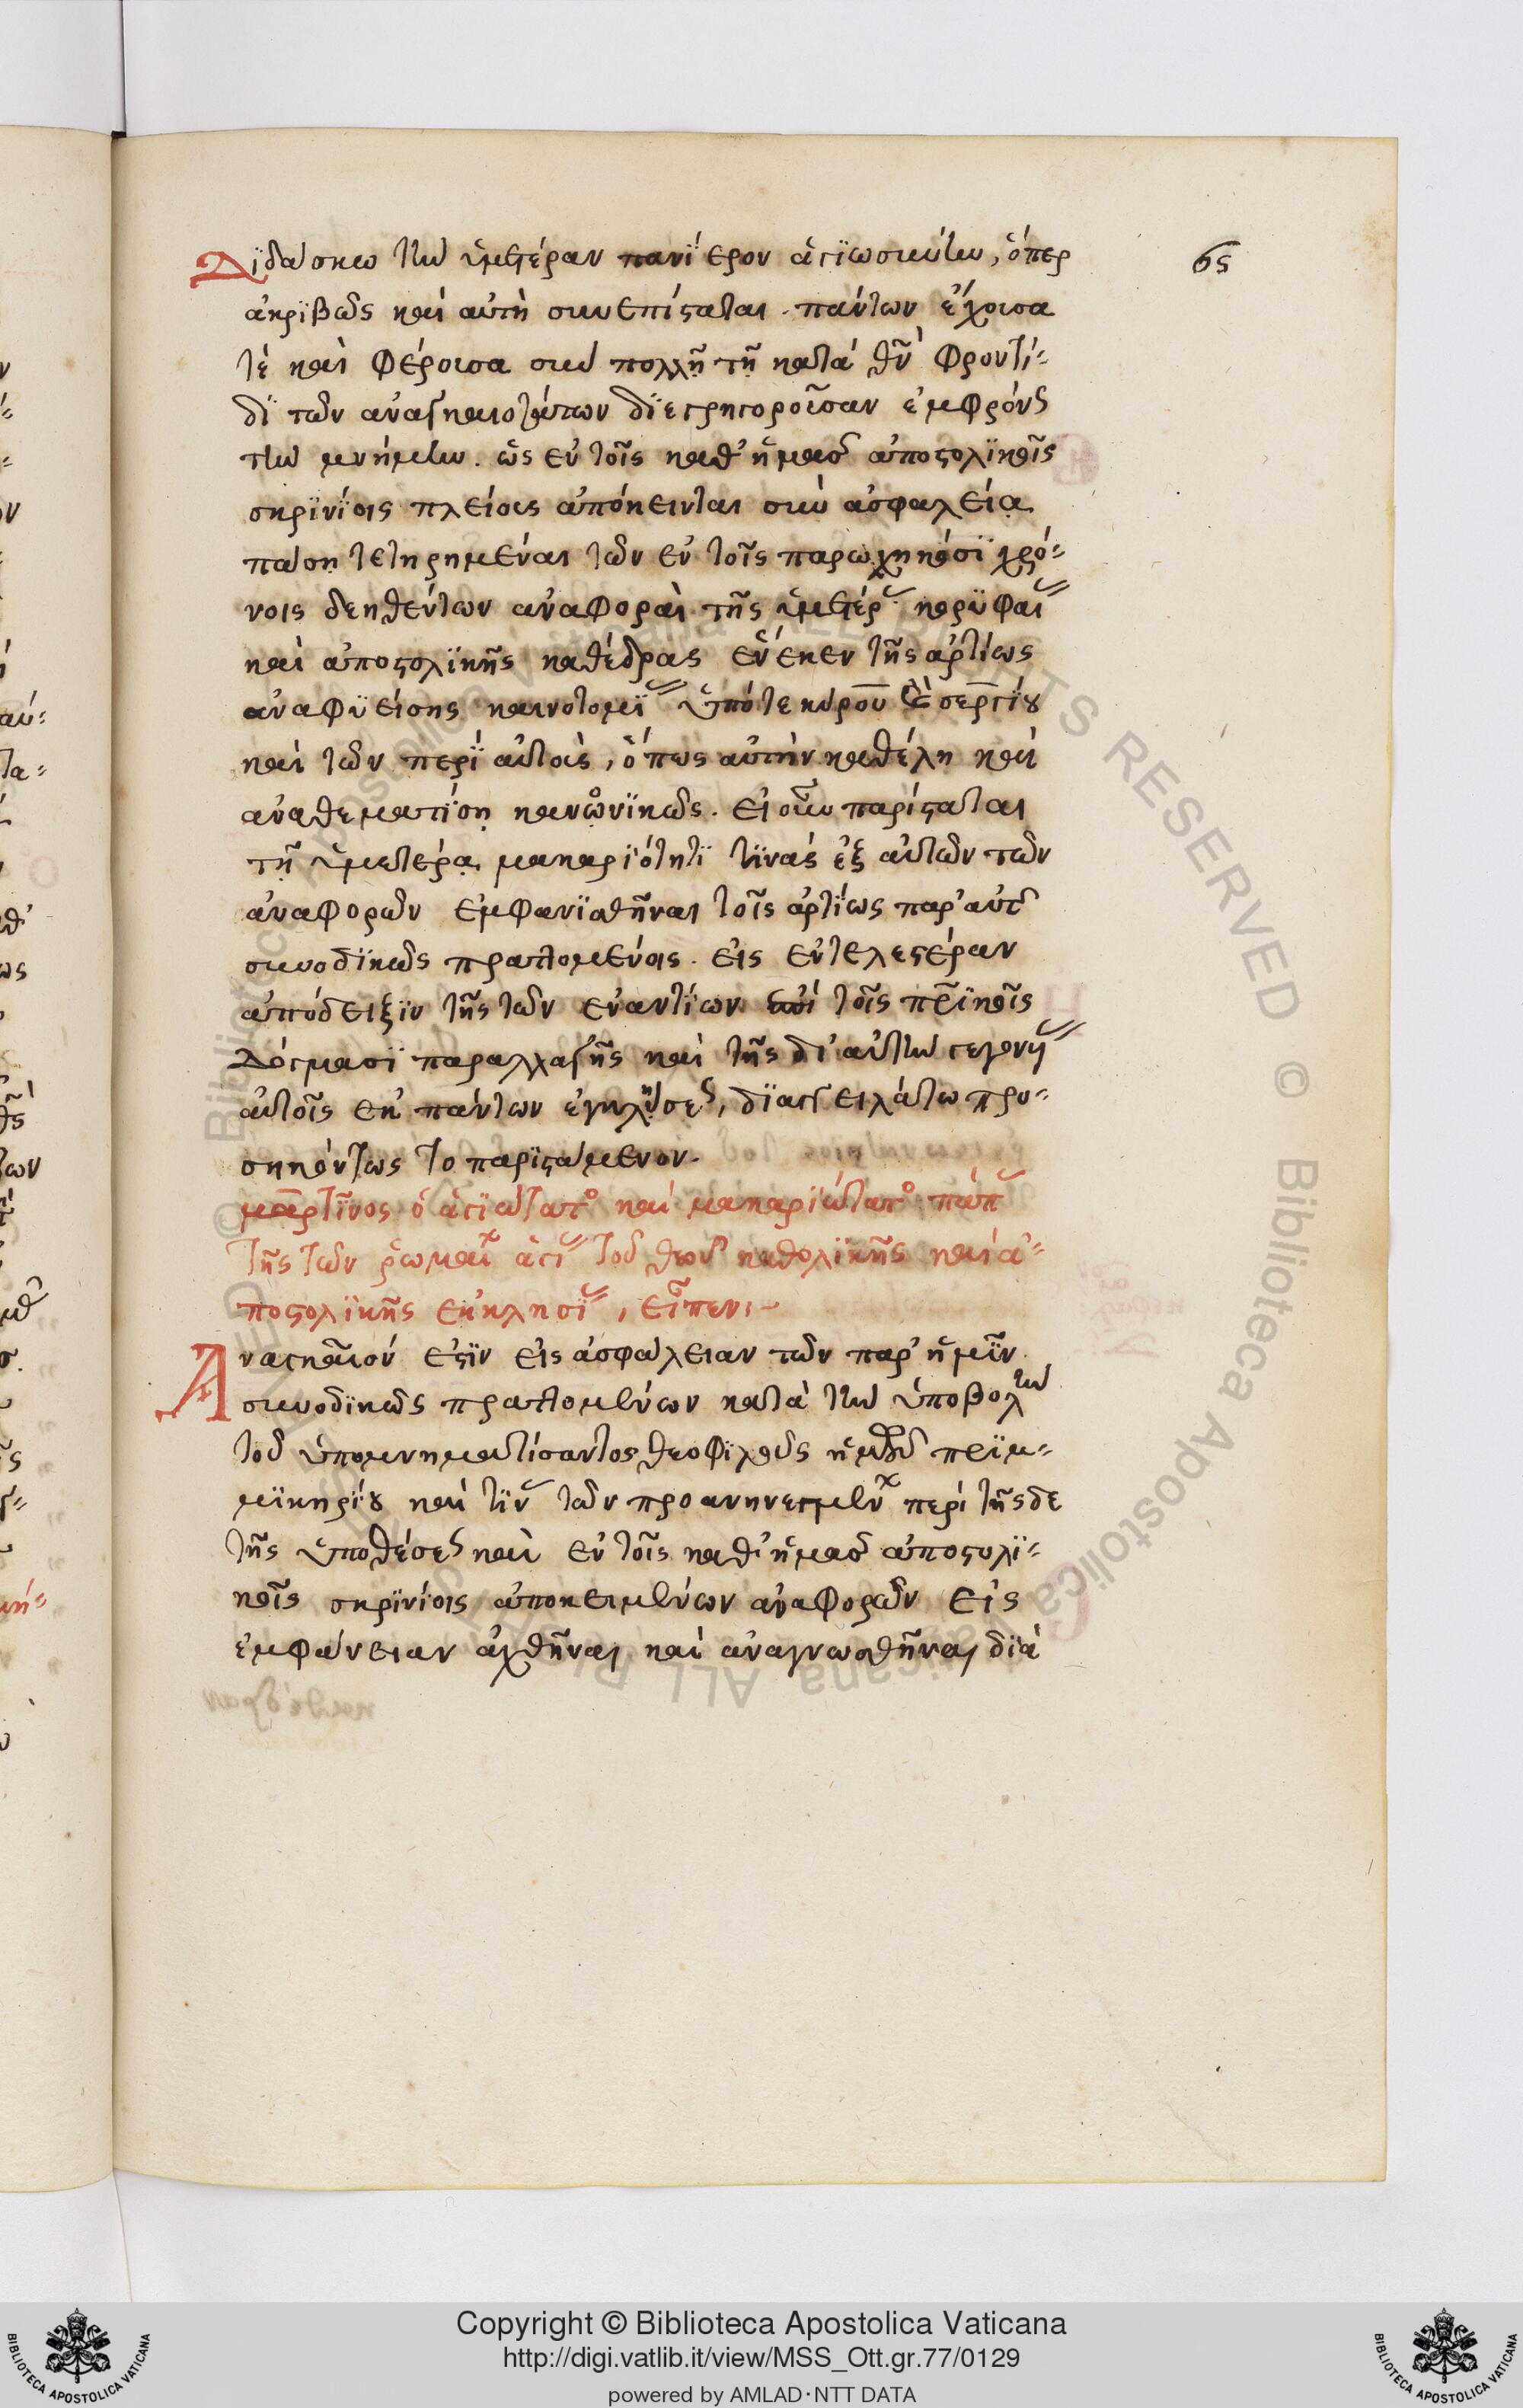 Διδάσκω τὴν ὑμετέραν πανίερον ἁγιωσύνην, ὅπερ
65
ἀκριβῶς καὶ αὐτὴ συνεπίσταται. πάντων ἔχουσα
τὲ καὶ φέρουσα σὺν πολλῇ τῇ κατὰ θν̅ φροντί-
δι τῶν ἀναγκαιοτάτων διεγρηγοροῦσαν ἐμφρόνως
τὴν μνήμην. ὡς ἐν τοῖς καθ' ἡμᾶς ἀποστολικοῖς
σκρινίοις πλεῖσαι ἀπόκεινται σὺν ἀσφαλείᾳ
πάσῃ τετηρημέναι τῶν ἐν τοῖς παρωχηκόσι χρό-
νοις δεηθέντων ἀναφοραὶ τῆς ὑμετέρας κορυφαίας
καὶ ἀποστολικῆς καθέδρας ἕνεκεν τῆς ἀρτίως
ἀναφυείσης καινοτομίας ὑπό τε κύρου καὶ σεργίου
καὶ τῶν περὶ αὐτοὺς, ὅπως αὐτὴν καθέλῃ καὶ
ἀναθεματίσῃ κανονικῶς. εἰ οὖν παρίσταται
τῇ ὑμετέρᾳ μακαριότητι τινὰς ἐξ αὐτῶν τῶν
ἀναφορῶν ἐμφανισθῆναι τοῖς ἀρτίως παρ' αὐτῆς
συνοδικῶς πραττομένοις. εἰς ἐντελεστέραν
ἀπόδειξιν τῆς τῶν ἐναντίων τοῖς πρικοῖς
δόγμασι παραλλαγῆς καὶ τῆς δι' αὐτὴν γεγονυίας
αὐτοῖς ἐκ πάντων ἐγκλήσεως, διαγγειλάτω προ-
σηκόντως τὸ παριστάμενον.
μαρτῖνος ὁ ἁγιώτατος καὶ μακαριώτατος πάπας
τῆς τῶν ῥωμαίων ἁγίας τοῦ θεοῦ καθολικῆς καὶ ἀ-
ποστολικῆς ἐκκλησίας, εἶπεν:-
Αναγκαῖόν ἐστιν εἰς ἀσφάλειαν τῶν παρ' ἡμῖν
συνοδικῶς πραττομένων κατὰ τὴν ὑποβολὴν
τοῦ ὑπομνηματίσαντος θεοφιλοῦς ἡμῶν πριμ-
μικηρίου καὶ τινὰς τῶν προανηνεγμένων περὶ τῆσδε
τῆς ὑποθέσεως καὶ ἐν τοῖς καθ' ἡμᾶς ἀποστολι-
κοῖς σκρινίοις ἀποκειμένων ἀναφορῶν εἰς
ἐμφάνειαν ἀχθῆναι καὶ ἀναγνωσθῆναι διὰ
Copyright © Biblioteca Apostolica Vaticana
http://digi.vatlib.it/view/MSS_Ott.gr.77/0129
powered by AMLAD·NTT DATA